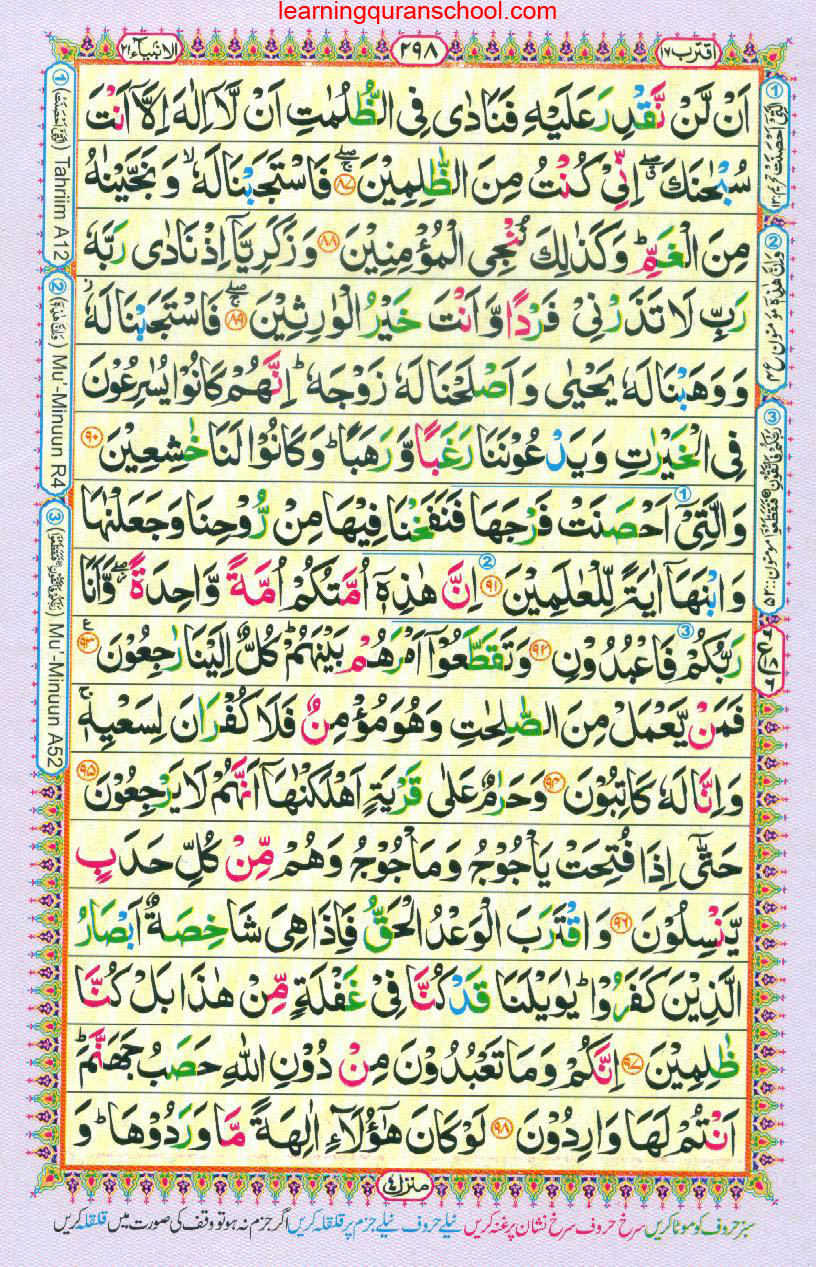 learningquranschool.com
اقترب ۱۷
۲۹۸
الانبیآء ۲۱
اَنْ لَّنْ نَّقْدِرَ عَلَیْهِ فَنَادٰى فِی الظُّلُمٰتِ اَنْ لَّاۤ اِلٰهَ اِلَّاۤ اَنْتَ
سُبْحٰنَكَ ۖۗ اِنِّیْ كُنْتُ مِنَ الظّٰلِمِیْنَ ۚۖ ﴿۸۷﴾ فَاسْتَجَبْنَا لَهٗ ۙ وَ نَجَّیْنٰهُ
مِنَ الْغَمِّ ؕ وَكَذٰلِكَ نُـنْجِی الْمُؤْمِنِیْنَ ﴿۸۸﴾ وَ زَكَرِیَّاۤ اِذْ نَادٰى رَبَّهٗ
رَبِّ لَا تَذَرْنِیْ فَرْدًا وَّ اَنْتَ خَیْرُ الْوٰرِثِیْنَ ۚۖ ﴿۸۹﴾ فَاسْتَجَبْنَا لَهٗ ؗ
وَ وَهَبْنَا لَهٗ یَحْیٰى وَ اَصْلَحْنَا لَهٗ زَوْجَهٗ ؕ اِنَّهُمْ كَانُوْا یُسٰرِعُوْنَ
فِی الْخَیْرٰتِ وَ یَدْعُوْنَنَا رَغَبًا وَّ رَهَبًا ؕ وَ كَانُوْا لَنَا خٰشِعِیْنَ ﴿۹۰﴾
وَ الَّتِیْۤ اَحْصَنَتْ فَرْجَهَا فَنَفَخْنَا فِیْهَا مِنْ رُّوْحِنَا وَ جَعَلْنٰهَا
وَ ابْنَهَاۤ اٰیَةً لِّلْعٰلَمِیْنَ ﴿۹۱﴾ اِنَّ هٰذِهٖۤ اُمَّتُكُمْ اُمَّةً وَّاحِدَةً ۖؗ وَّ اَنَا
رَبُّكُمْ فَاعْبُدُوْنِ ﴿۹۲﴾ وَ تَقَطَّعُوْۤا اَمْرَهُمْ بَیْنَهُمْ ؕ كُلٌّ اِلَیْنَا رٰجِعُوْنَ ﴿۹۳﴾
فَمَنْ یَّعْمَلْ مِنَ الصّٰلِحٰتِ وَ هُوَ مُؤْمِنٌ فَلَا كُفْرَانَ لِسَعْیِهٖ ۚ
وَ اِنَّا لَهٗ كَاتِبُوْنَ ﴿۹۴﴾ وَ حَرٰمٌ عَلٰى قَرْیَةٍ اَهْلَكْنٰهَاۤ اَنَّهُمْ لَا یَرْجِعُوْنَ ﴿۹۵﴾
حَتّٰۤى اِذَا فُتِحَتْ یَاْجُوْجُ وَ مَاْجُوْجُ وَ هُمْ مِّنْ كُلِّ حَدَبٍ
یَّنْسِلُوْنَ ﴿۹۶﴾ وَ اقْتَرَبَ الْوَعْدُ الْحَقُّ فَاِذَا هِیَ شَاخِصَةٌ اَبْصَارُ
الَّذِیْنَ كَفَرُوْا ؕ یٰوَیْلَنَا قَدْ كُنَّا فِیْ غَفْلَةٍ مِّنْ هٰذَا بَلْ كُنَّا
ظٰلِمِیْنَ ﴿۹۷﴾ اِنَّكُمْ وَ مَا تَعْبُدُوْنَ مِنْ دُوْنِ اللّٰهِ حَصَبُ جَهَنَّمَ ؕ
اَنْتُمْ لَهَا وَارِدُوْنَ ﴿۹۸﴾ لَوْ كَانَ هٰۤؤُلَآءِ اٰلِهَةً مَّا وَرَدُوْهَا ؕ وَ
منزل ۴
سبز حروف کو موٹا کریں سرخ حروف سرخ نشان پر غنہ کریں نیلے حروف نیلے جزم پر قلقلہ کریں اگر جزم نہ ہو تو وقف کی صورت میں قلقلہ کریں
① Tahriim A12
② Mu'-Minuun R4
③ Mu'-Minuun A52